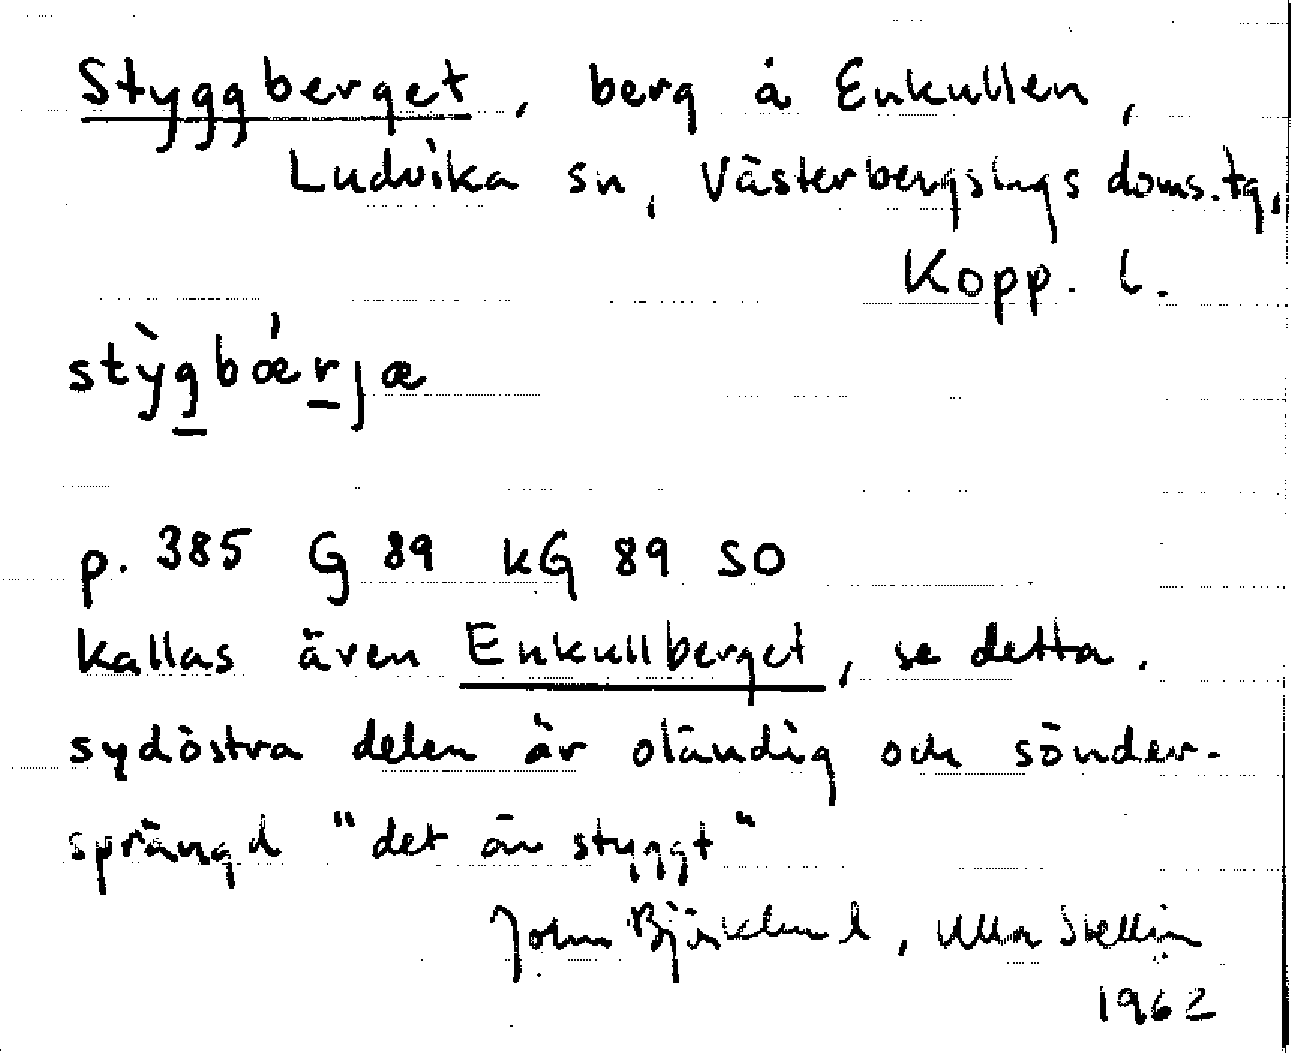 Styggberget, berg å Enkullen,
Ludvika sn, Västerbergslags doms.tg,
Kopp. l.
stỳgbǽrjæ
p. 385 G 89 kG 89 SO
kallas även Enkullberget, se detta.
sydöstra delen är oländig och sönder-
sprängd "det är styggt"
John Björklund, Ulla Stellin
1962